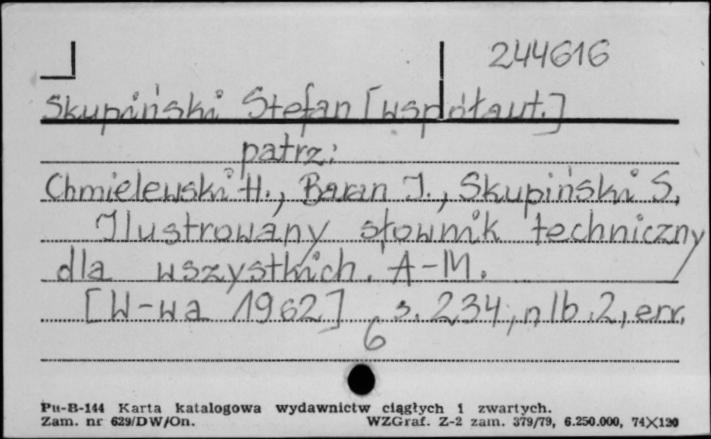 244616
Skupiński Stefan [współaut.]
patrz:
Chmielewski H., Baran J., Skupiński S.
Ilustrowany słownik techniczny
dla wszystkich. A-M.
[W-wa 1962] s. 234, nlb. 2, err.
6
Pu-B-144 Karta katalogowa wydawnictw ciągłych i zwartych.
Zam. nr 629/DW/On. WZGraf. Z-2 zam. 379/79, 6.250.000, 74×120